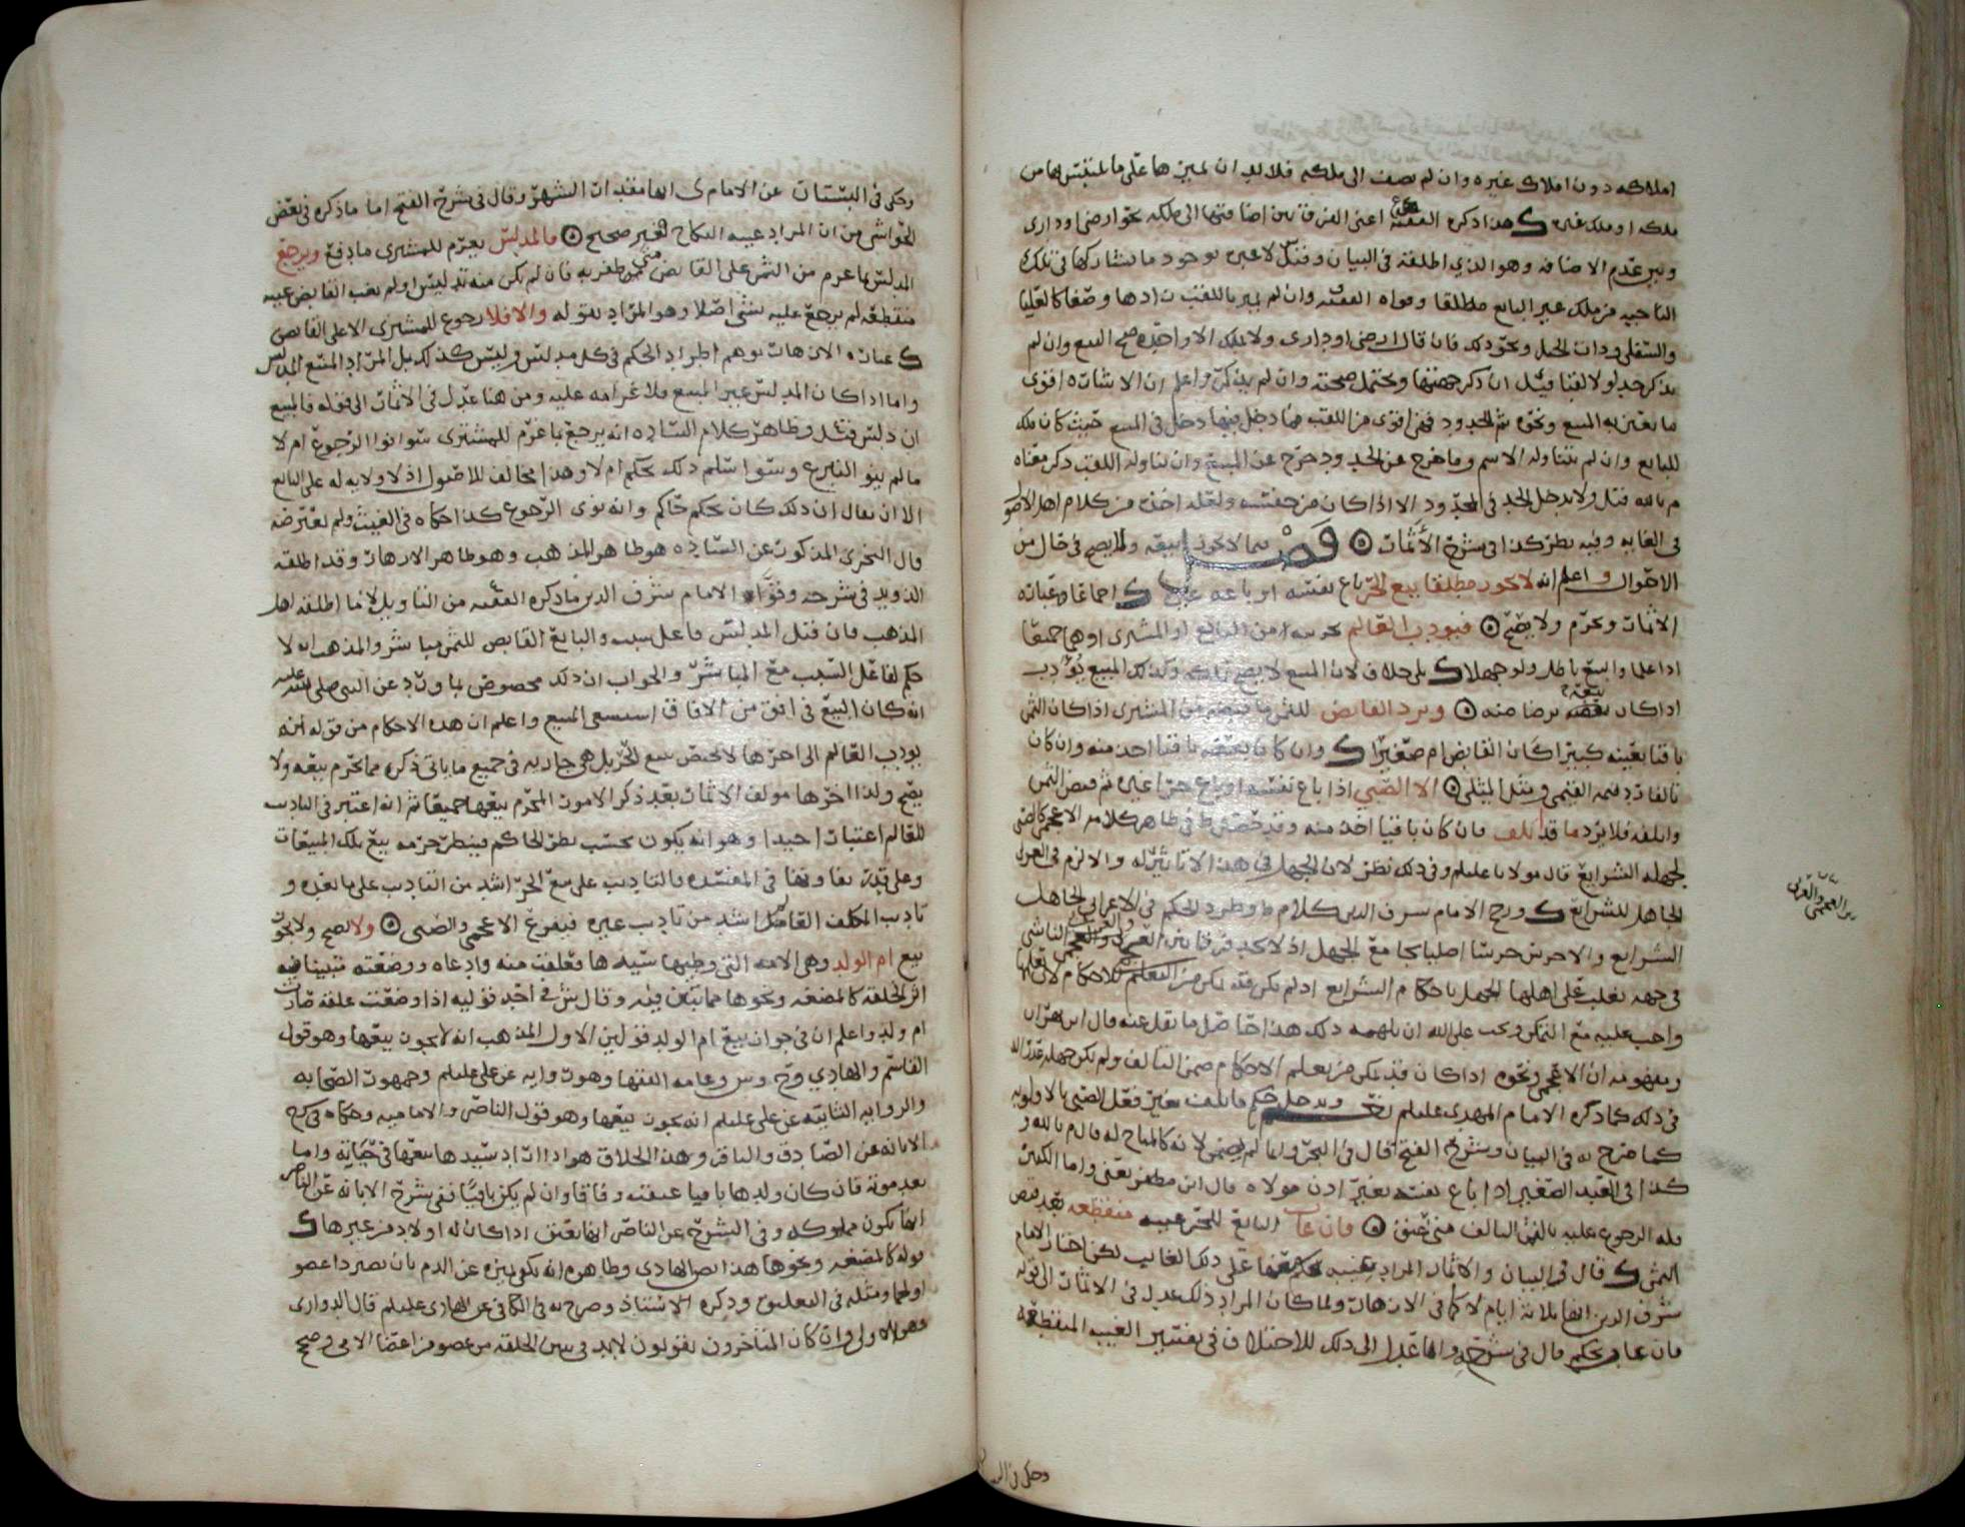 املاكه دون املاك غيره وان لم يضف الى ملكه فلا بد ان يميزها على ما يلتبس بها من
ملكه او ملك غيره هذا ذكره الفقيه ح اعنى الفرق بين اضافتها الى ملكه نحو ارضى او دارى
وبين عدم الاضافه وهو الذي اطلقه فى البيان وقيل لا عبره بوجود ما يشاركها فى تلك
الناحيه من ملك غير البايع مطلقا وقواه الفقيه وان لم يميز باللقب زادها وصفا كالعليا
والسفلى وذات النخل ونحو ذلك فان قال ارضى او دارى ولا يملك الا واحده صح البيع وان لم
يذكر حد ولا لقبا قيل ان ذكر جهتها ويحتمل صحته وان لم يذكر واعلم ان الاشاره اقوى
ما يعين به المبيع ونحوه ثم الحدود فهى اقوى من اللقب فما دخل فيها دخل فى المبيع حيث كان ملك
للبايع وان لم يتناوله الاسم وما خرج عن الحد وخرج عن المبيع وان تناوله اللقب ذكر معناه
م بالله قيل ولا يدخل الحد فى المحدود الا اذا كان من جنسه ولعله اخذه من كلام اهل الاصول
فى الغايه وفيه نظر كذا فى شرح الاثمار فصل فيما لا يجوز بيعه ولا يصح فى حال من
الاحوال واعلم انه لا يجوز مطلقا بيع الحر باع نفسه او باعه غيره اجماعا وعباره
الاثمار ويحرم ولا يصح فيودب العالم بحريته من البايع او المشترى او هما جميعا
اذا علما والبيع باطل ولو جهلا بلا خلاف لان المبيع لا يصح تملكه وكذلك المبيع يودب
اذا كان بيعه برضا منه ويرد القابض للثمن ما قبضه من المشترى اذا كان الثمن
باقيا بعينه كبيرا كان القابض ام صغيرا وان كان بعضه باقيا اخذ منه وان كان
تالفا رد قيمه القيمى ومثل المثلى الا الصبي اذا باع نفسه او باع حرا غيره ثم قبض الثمن
واتلفه فلا يرد ما قد تلف فان كان باقيا اخذ منه وقد خص فى ظاهر كلامه الاعجمى كالصبى
لجهله الشرايع قال مولانا عليلم وفى ذلك نظر لان الجهل فى هذا لا تاثير له والا لزم فى العربى
الجاهل للشرايع ورجح الامام شرف الدين كلام ط وطرد الحكم فى الاعرابى الجاهل
الشرايع والاخرس خرسا اصليا بجامع الجهل اذ لا نجد فرقا بين العربى والعجمى الناشى
فى جهه يغلب على اهلها الجهل باحكام الشرايع اذ لم يكن قد تمكن من التعلم للاحكام لان تعلمها
واجب عليه مع التمكن ويجب على الله ان يلهمه ذلك هذا حاصل ما نقل عنه قال ابن بهران
ومفهومه ان الاعجمى ونحوه اذا كان قد تمكن من تعلم الاحكام ضمن التالف ولم يكن جهله عذرا له
فى ذلك كما ذكره الامام المهدى عليلم ويدخل فى حكم ما تلف بغير فعل الصبى بالاولويه
كما صرح به فى البيان وشرح الفتح قال فى البحر وانما لم يضمن لانه كالمباح له قال م بالله و
كذا فى العبد الصغير اذا باع نفسه بغير اذن مولاه قال ابن مظفر يعنى واما الكبير
فله الرجوع عليه بالثمن التالف متى عتق فان غاب البايع للحر غيبه منقطعه بعد قبض
الثمن قال فى البيان والاثمار المراد بغيبه يحكم معها على ذلك الغايب لكن اختار الامام
شرف الدين انها ثلاثه ايام لا كما فى الازهار ولما كان المراد ذلك عدل فى الاثمار الى قوله
فان غاب بحكم قال فى شرحه وانما عدل الى ذلك للاختلاف فى تفسير الغيبه المنقطعه
بين العجمى والعربى
وحكى فى البستان
وحكى فى البستان عن الامام ى انها مقدار الشهر وقال فى شرح الفتح اما ما ذكره فى بعض
الحواشى من ان المراد غيبه النكاح فغير صحيح فالمدلس يغرم للمشترى ما دفع ويرجع
المدلس بما غرم من الثمن على القابض متى ظفر به فان لم يكن منه تدليس او لم يغب القابض غيبه
منقطعه لم يرجع عليه بشى اصلا وهو المراد بقوله والا فلا رجوع للمشترى الا على القابض
عباره الازهار توهم اطراد الحكم فى كل مدلس وليس كذلك بل المراد المبيع المدلس
واما اذا كان المدلس غير المبيع فلا غرامه عليه ومن هنا عدل فى الاثمار الى قوله فالمبيع
ان دلس قيل وظاهر كلام الساده انه يرجع بما غرم للمشترى سوا نوا الرجوع ام لا
ما لم ينو التبرع وسوا سلم ذلك بحكم ام لا وهذا مخالف للاصول اذ لا ولايه له على البايع
الا ان يقال ان ذلك كان بحكم حاكم وانه نوى الرجوع كذا حكاه فى الغيث ولم يعترضه
قال النجرى المذكور عن الساده هو ظاهر المذهب وهو ظاهر الازهار وقد اطلقه
الذويد فى شرحه وقواه الامام شرف الدين ما ذكره الفقيه من التاويل لا ما اطلقه اهل
المذهب فان قيل المدلس فاعل سبب والبايع القابض للثمن مباشر والمذهب انه لا
حكم لفاعل السبب مع المباشر والجواب ان ذلك مخصوص بما ورد عن النبى صلى الله عليه
انه كان البيع فى افق من الافاق استسعى المبيع واعلم ان هذه الاحكام من قوله انه
يودب العالم الى اخرها لا تختص ببيع الحر بل هى جاريه فى جميع ما ياتى ذكره مما يحرم بيعه ولا
يصح ولذا اخرها مولف الاثمار بعد ذكر الامور المحرم بيعها جميعا ثم انه اعتبر فى التاديب
للعالم اعتبارا جيدا وهو انه يكون بحسب نظر الحاكم فينظر حرمه بيع تلك المبيعات
وعلى قدر تفاوتها فى المفسده فالتاديب على بيع الحر اشد من التاديب على ما بعده و
تاديب المكلف العاقل اشد من تاديب غيره فيفرع الاعجمى والصبى ولا يصح ولا يجوز
بيع ام الولد وهى الامه التى وطيها سيدها فعلقت منه وادعاه ووضعته متبينا فيه
اثر الخلقه كالمضغه ونحوها مما تبين فيه وقال ش فى احد قوليه اذا وضعت علقه صارت
ام ولد واعلم ان فى جواز بيع ام الولد قولين الاول المذهب انه لا يجوز بيعها وهو قول
القاسم والهادي وح وش وعامه الفقها وهو روايه عن على عليلم وجمهور الصحابه
والروايه الثانيه عن على عليلم انه يجوز بيعها وهو قول الناصر والاماميه وحكاه فى شرح
الابانه عن الصادق والباقر وهذا الخلاف هو اذا اراد سيدها بيعها فى حياته واما
بعد موته فان كان ولدها باقيا عتقت وفاقا وان لم يكن باقيا ففى شرح الابانه عن الناصر
انها تكون مملوكه وفى الشرح عن الناصر انها تعتق اذا كان له اولاد من غيرها
قوله كالمضغه ونحوها هذا نص الهادى وظاهره انه يكون تميزه عن الدم بان يصير ذا عضو
او لحما ومثله فى التعليق وذكره الاستاذ وصرح به فى الكافى عن الهادى عليلم قال الدوارى
وهو الاولى وان كان المتاخرون يقولون لا بد فى تبين الخلقه من عضو من اعضا الادمى وصح